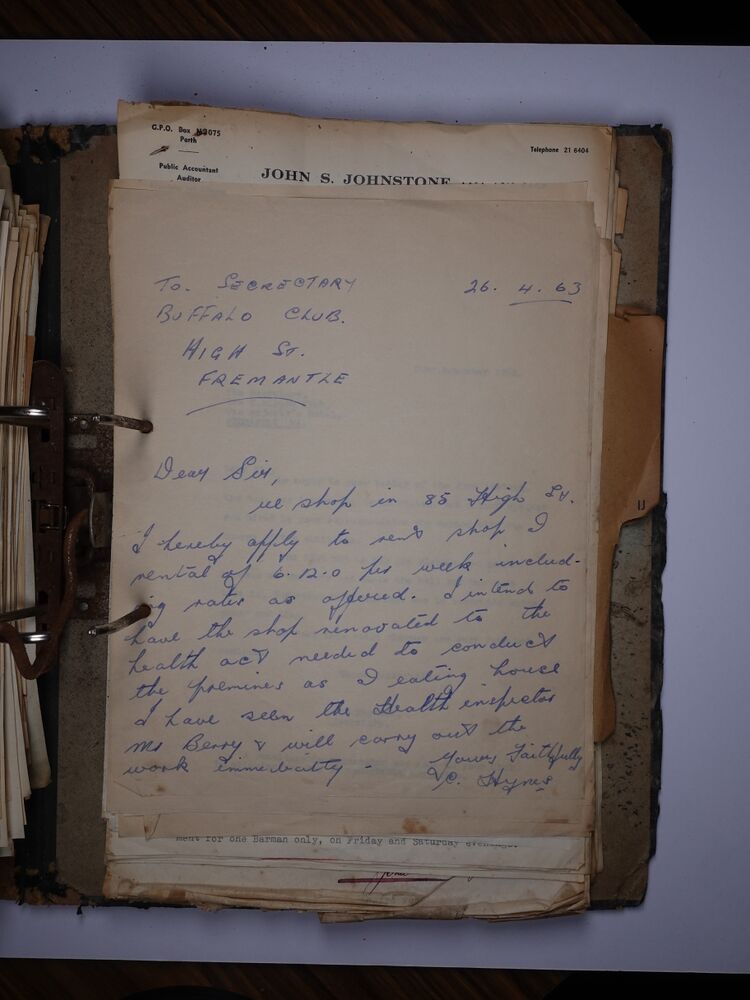 G.P.O. Box
Perth
Telephone 21 6404
Public Accountant
Auditor
JOHN S. JOHNSTONE
To. SECRECTARY
26. 4. 63
BUFFALO CLUB.
HIGH ST.
FREMANTLE
Dear Sir,
re shop in 85 High St.
I hereby apply to rent shop I
rental of 6.12.0 per week includ-
ing rates as offered. I intend to
have the shop renovated to the
health act needed to conduct
the premines as I eating house
I have seen the Health inspector
Mr Berry & will carry out the
work immediatly -
Yours Faithfully
C. Hynes
ment for one Barman only, on Friday and Saturday evenings.